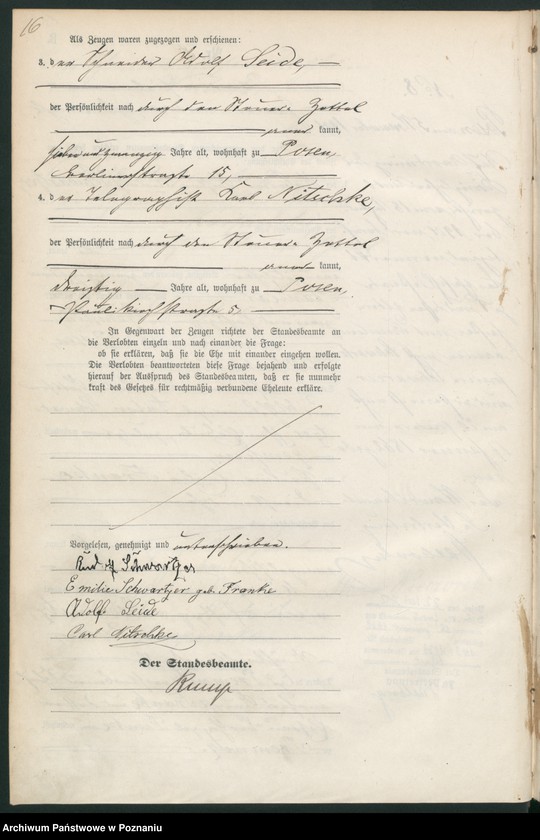 16
Als Zeugen waren zugezogen und erschienen:
3. der Schneider Adolf Seide,
der Persönlichkeit nach durch den Steuer-Zettel
anerkannt,
sieben und zwanzig Jahre alt, wohnhaft zu Posen,
Berlinerstrasse 15,
4. der Telegraphist Karl Nitschke,
der Persönlichkeit nach durch den Steuer-Zettel
anerkannt,
dreißig Jahre alt, wohnhaft zu Posen,
Paulikirchstrasse 5.
In Gegenwart der Zeugen richtete der Standesbeamte an
die Verlobten einzeln und nach einander die Frage:
ob sie erklären, daß sie die Ehe mit einander eingehen wollen.
Die Verlobten beantworteten diese Frage bejahend und erfolgte
hierauf der Ausspruch des Standesbeamten, daß er sie nunmehr
kraft des Gesetzes für rechtmäßig verbundene Eheleute erkläre.
Vorgelesen, genehmigt und unterschrieben.
Rudolf Schwartzer
Emilie Schwartzer geb. Franke
Adolf Seide
Carl Nitschke
Der Standesbeamte.
Archiwum Państwowe w Poznaniu